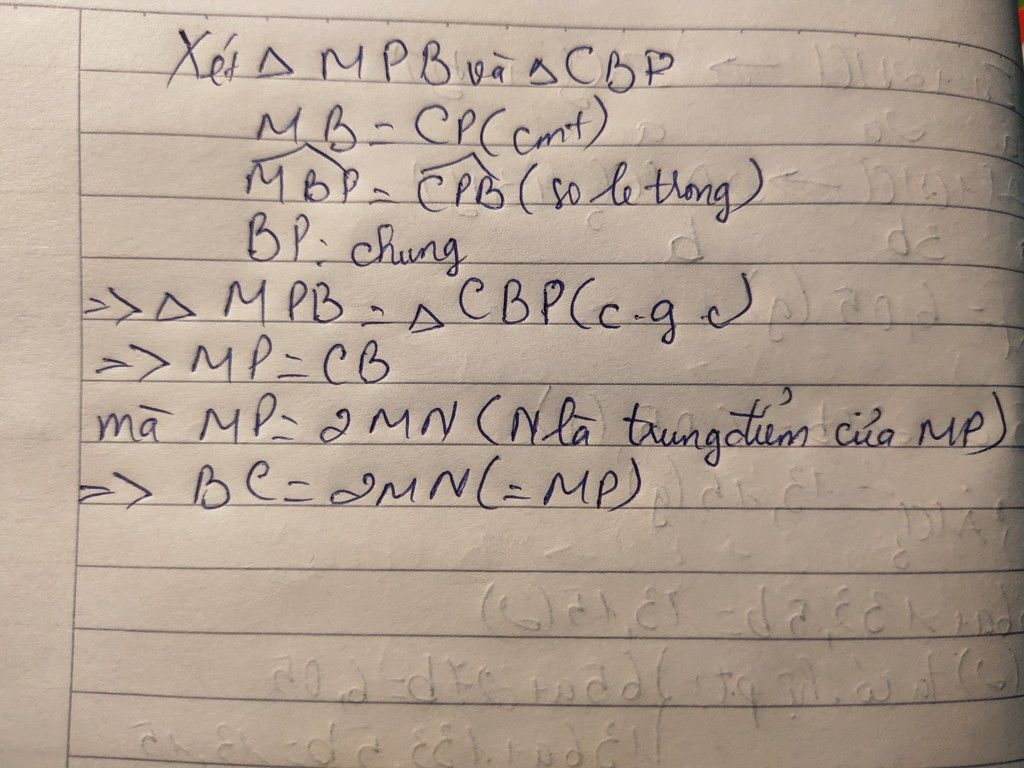 Xét Δ MPB và Δ CBP
MB = CP (cmt)
\widehat{MBP} = \widehat{CPB} (so le trong)
BP: chung
=> Δ MPB = Δ CBP (c.g.c)
=> MP = CB
mà MP = 2MN (N là trung điểm của MP)
=> BC = 2MN (= MP)